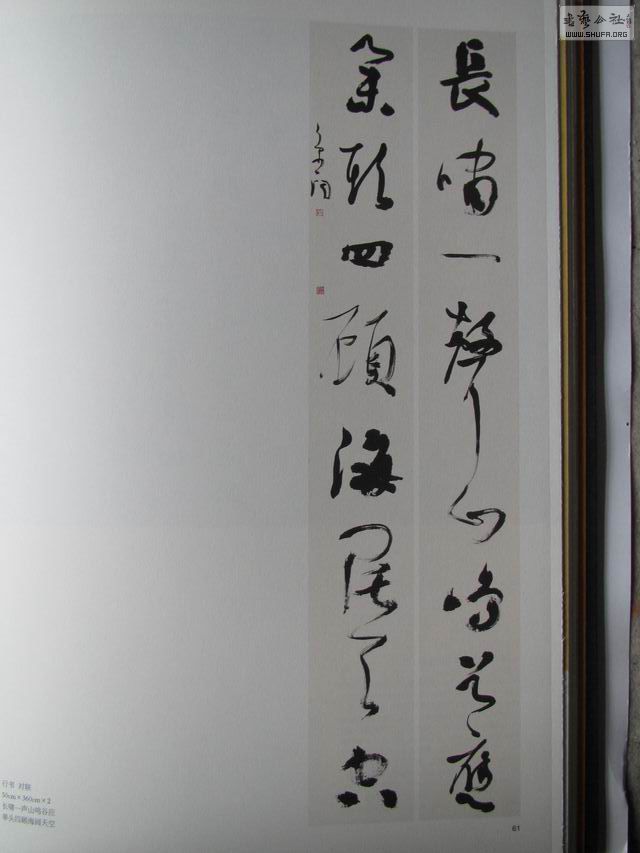 長嘯一聲山鳴谷應
舉頭四顧海闊天空
行书 对联
50cm×360cm×2
长啸一声山鸣谷应
举头四顾海阔天空
61
書藝公社
WWW.SHUFA.ORG